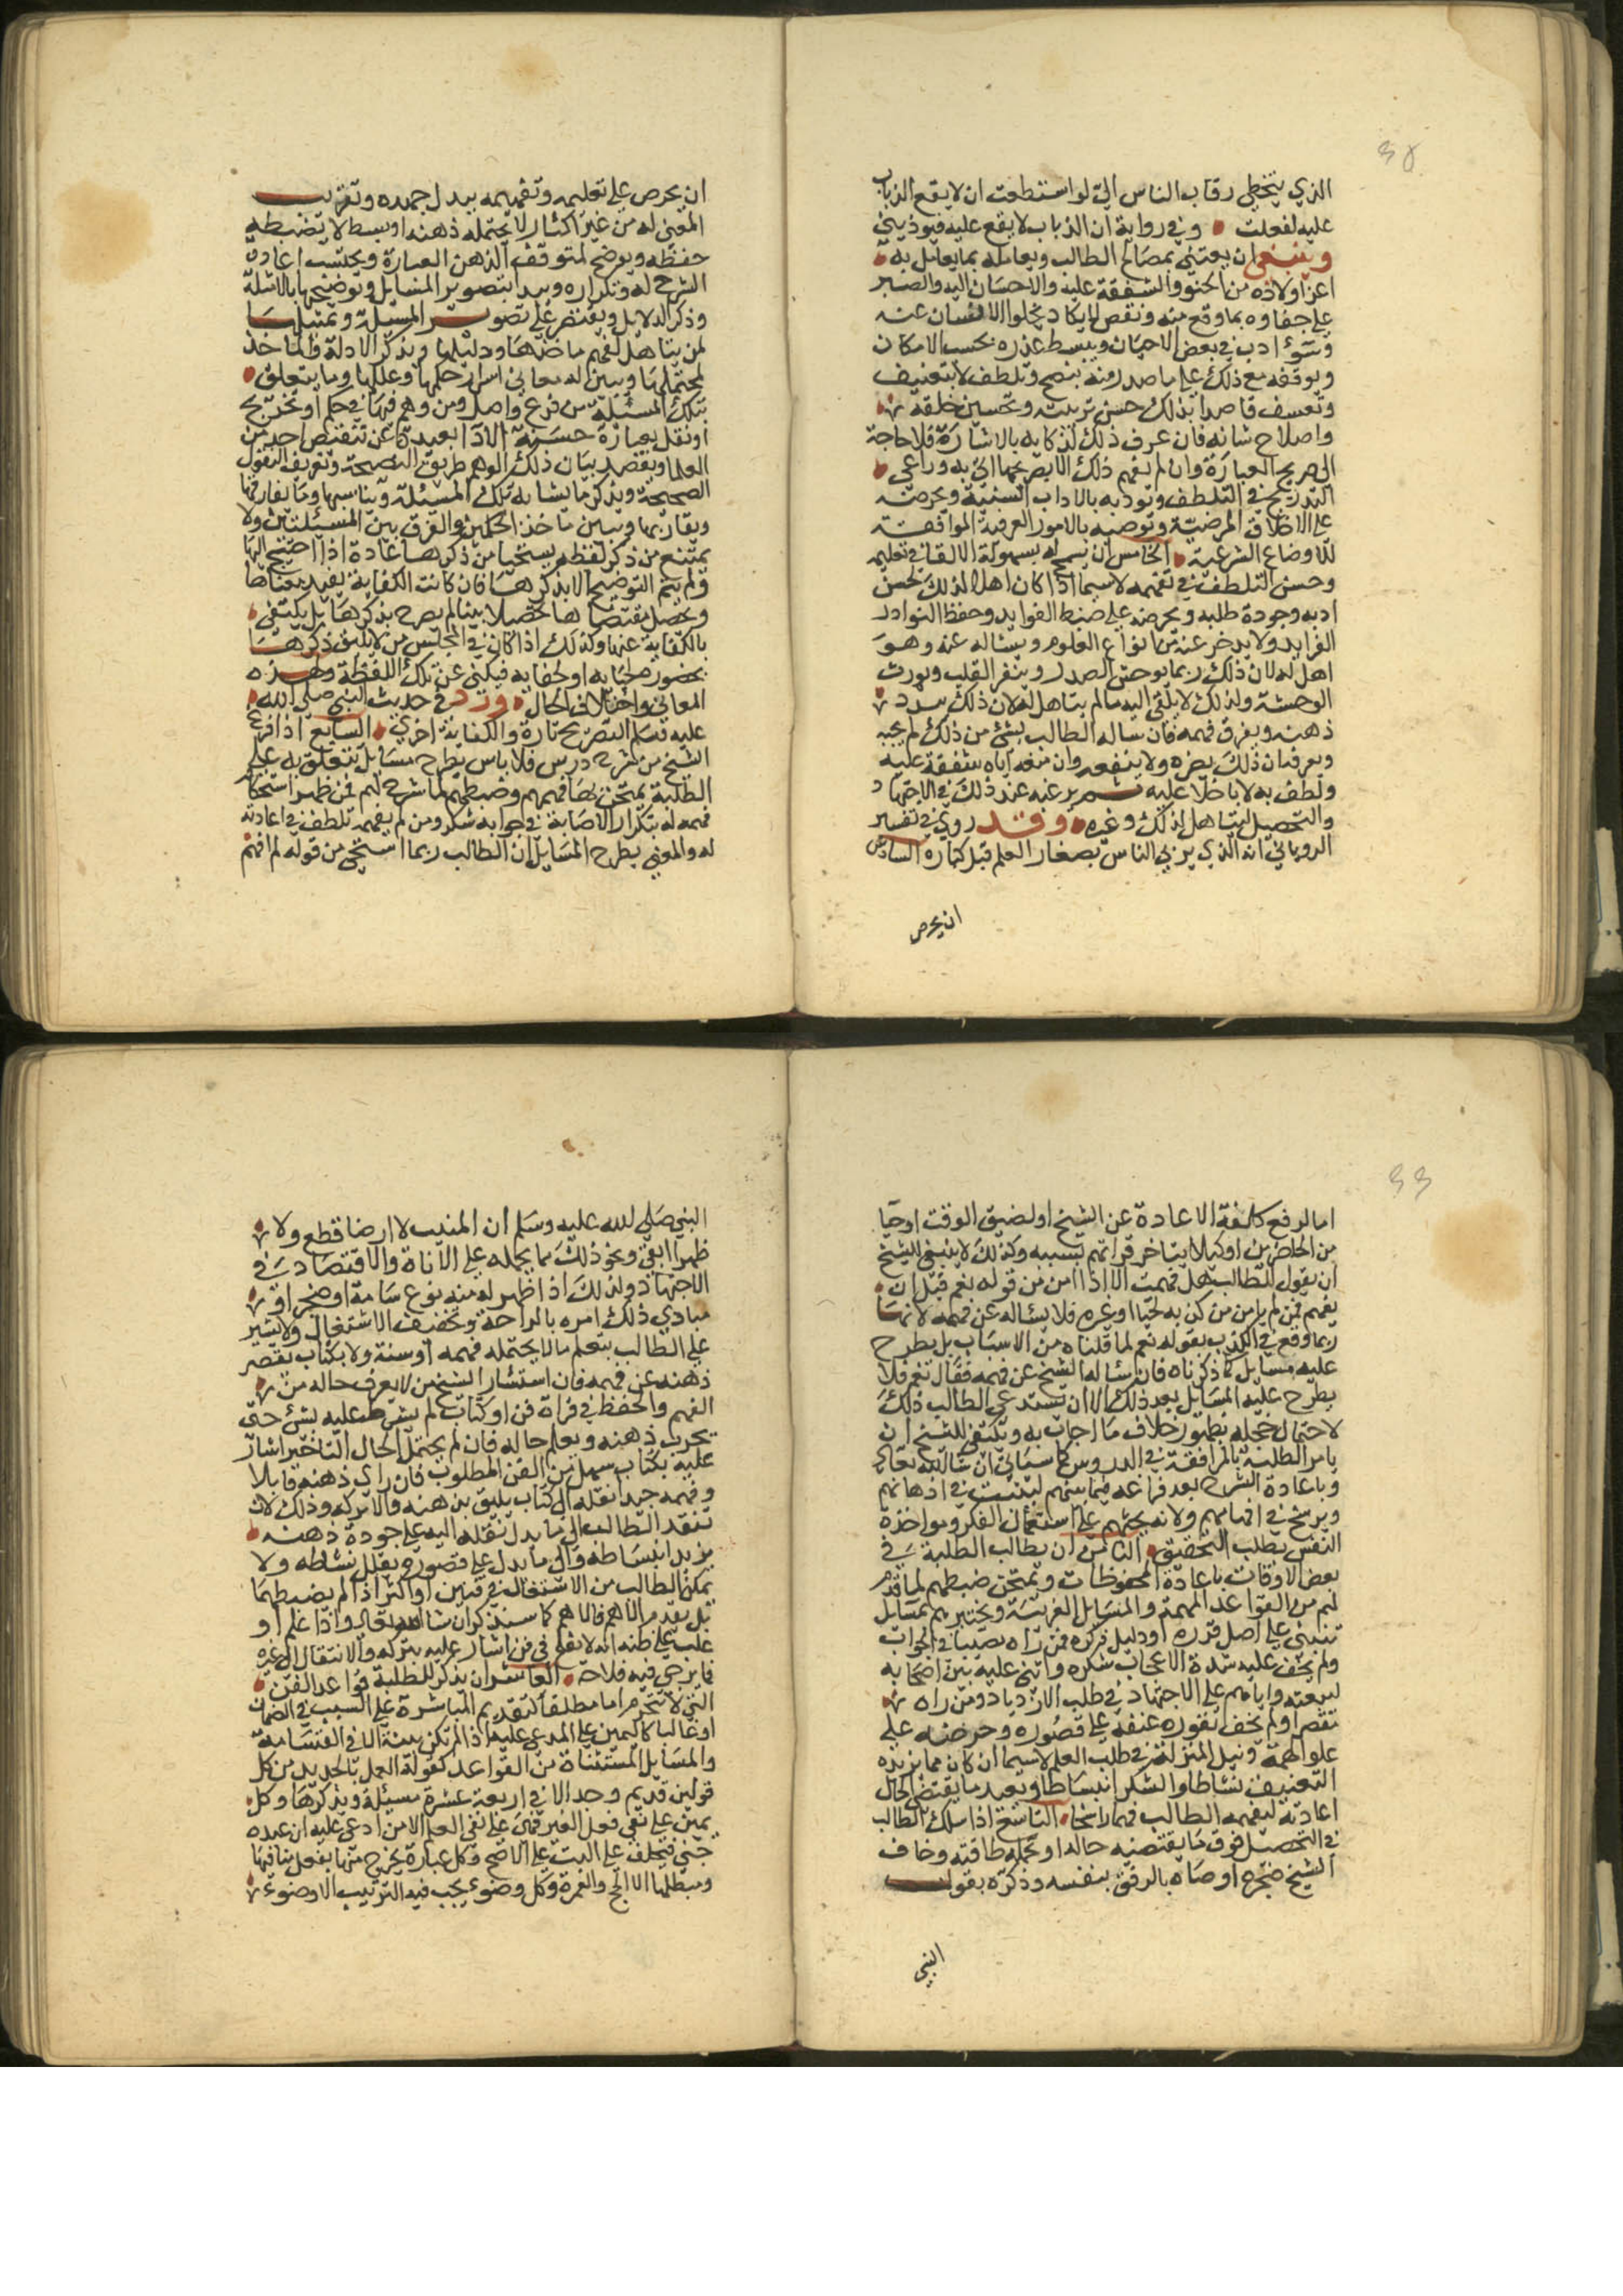 ٣٥
الذي يتخطى رقاب الناس اليّ لو استطعت ان لا يقع الذباب
عليه لفعلت وفي رواية ان الذباب لا يقع عليه فيوذيني
وينبغي ان يعتني بمصالح الطالب ويعامله بما يعامل به
اعز اولاده من الحنو والشفقة عليه والاحسان اليه والصبر
على جفا وه بما وقع منه ونقص لا يكاد يخلوا الانسان عنه
وسؤ ادب في بعض الاحيان ويبسط عذره بحسب الامكان
ويوقفه مع ذلك على ما صدر منه بنصح وتلطف لا بتعنيف
وتعسف قاصدا بذلك حسن تربيته وتحسين خلقه
واصلاح شانه فان عرف ذلك لذكايه بالاشارة فلا حاجة
الى صريح العبارة وان لم يفهم ذلك الا بصريحها اتى به وراعى
التدريج في التلطف وتودبه بالاداب السنية ويحرضه
على الاخلاق المرضية وتوصيه بالامور العرفية الموافقة
للاوضاع الشرعية الخامس ان يسمح له بسهولة الالقا في تعليمه
وحسن التلطف في تفهيمه لاسيما اذا كان اهلا لذلك لحسن
ادبه وجودة طلبه ويحرضه على ضبط الفوايد وحفظ النوادر
الفرايد ولا يدخر عنه من انواع العلوم ويساله عنه وهو
اهل له لان ذلك ربما يوحش الصدر وينفر القلب ويورث
الوحشة ولذلك لا يلقي اليه ما لم يتاهل له لان ذلك يبدد
ذهنه ويفرق فهمه فان ساله الطالب بشئ من ذلك لم يجبه
ويعرفه ان ذلك يضره ولا ينفعه وان منعه اياه لشفقة عليه
ولطف به لا بخلا عليه ثم يرغبه عند ذلك في الاجتهاد
والتحصيل ليتاهل لذلك وغيره وقد روي في تفسير
الرباني انه الذي يربي الناس بصغار العلم قبل كباره السادس
ان يحرص
ان يحرص على تعليمه وتفهيمه ببدل جهده وتقريب
المعنى له من غير اكثار لا يحتمله ذهنه او بسط لا تضبطه
حفظه ويوضح لمتوقف الذهن العبارة ويحتسب اعادة
الشرح له وتكراره ويبدا بتصوير المسايل وتوضيحها بالامثلة
وذكر الدلايل ويقتصر على تصوير المسيلة وتمثيلها
لمن يتاهل لفهم ماخذها ودليلها ويذكر الادلة والماخذ
لمحتملها ويبين له معاني اسرار حكمها وعللها وما يتعلق
بتلك المسئلة من فرع واصل ومن وهم فيها في حكم او تخريج
او نقل بعبارة حسنة الادا بعيدة عن تنقيص احد من
العلما ويقصد ببيان ذلك الوهم طريق النصيحة وتعريف النقول
الصحيحة ويذكر ما يشابه تلك المسيلة ويناسبها وما يفارقها
ويقاربها ويبين ماخذ الحكمين والفرق بين المسئلتين ولا
يمتنع من ذكر لفظه يستحيا من ذكرها عادة اذا احتيج اليها
ولم يتم التوضيح الا بذكرها فان كانت الكناية يفيد معناها
ويحصل مقتضاها تحصيلا بينا لم يصرح بذكرها بل يكتفي
بالكناية عنها وكذلك اذا كان في المجلس من لا يليق ذكرها
بحضوره لحيايه او لخفايه فيكنى عن تلك اللفظة ولهذه
المعاني واختلاف الحال ورد في حديث النبي صلى الله
عليه وسلم التصريح تارة والكناية اخرى السابع اذا فرغ
الشيخ من شرح درس فلا باس بطرح مسايل تتعلق به على
الطلبة يمتحن بها فهمهم وضبطهم لما شرح لهم فمن ظهر استحكام
فهمه له بتكرار الاصابة في جوابه شكره ومن لم يفهمه تلطف في اعادته
له والمعنى بطرح المسايل ان الطالب ربما استحى من قوله لم افهم
٣٦
اما لرفع كلفة الاعادة عن الشيخ او لضيق الوقت او حيا
من الحاضرين او كيلا يتاخر قراتهم بسببه وكذلك لا ينبغي للشيخ
ان يقول للطالب هل فهمت الا اذا امن من قوله نعم قبل ان
يفهم فمن لم يامن من كذبه لحيا او غيره فلا يساله عن فهمه لانه
ربما وقع في الكذب بقوله نعم لما قلناه من الاسباب بل يطرح
عليه مسايل كما ذكرناه فان سئاله الشيخ عن فهمه فقال نعم فلا
يطرح عليه المسايل بعد ذلك الا ان يستدعي الطالب ذلك
لاحتمال خجله بظهور خلاف ما اجاب به وينبغي للشيخ ان
يامر الطلبة بالمرافقة في الدروس كما سياتي ان شا الله تعالى
وباعادة الشرح بعد فراغه فيما بينهم ليثبت في اذهانهم
ويرسخ في افهامهم ولانه يحثهم على استعمال الفكر ومواخذة
النفس بطلب التحقيق الثامن ان يطالب الطلبة في
بعض الاوقات باعادة المحفوظات ويمتحن ضبطهم لما قدم
لهم من القواعد المهمة والمسايل الغريبة ويختبرهم بمسايل
تنبني على اصل قرره او دليل ذكره فمن راه مصيبا في الجواب
ولم يخف عليه شدة الاعجاب شكره واثنى عليه بين اصحابه
ليبعثه واياهم على الاجتهاد في طلب الازدياد ومن راه
مقصرا ولم يخف نفوره عنفه على قصوره وحرضه على
علو الهمة ونيل المنزلة في طلب العلم لاسيما ان كان مما يزيده
التعنيف نشاطا والشكر انبساطا ويعيد ما يقتضي الحال
اعادته ليفهمه الطالب فهما راسخا التاسع اذا سلك الطالب
في التحصيل فوق ما يقتضيه حاله او تحمله طاقته وخاف
الشيخ ضجره اوصاه بالرفق بنفسه وذكره بقول
النبي
النبي صلى الله عليه وسلم ان المنبت لا ارضا قطع ولا
ظهرا ابقى ونحو ذلك مما يحمله على الاناة والاقتصاد في
الاجتهاد وكذلك اذا ظهر له منه نوع سامة او ضجر او
مبادي ذلك امره بالراحة وتخفيف الاشتغال ولا يشير
على الطالب بتعلم ما لا يحتمله فهمه او سنه ولا بكتاب يقصر
ذهنه عن فهمه فان استشار الشيخ من لا يعرف حاله من
الفهم والحفظ في قراة فن او كتاب لم يشر عليه بشئ حتى
يجرب ذهنه ويعلم حاله فان لم يحتمل الحال التاخير اشار
عليه بكتاب سهل من الفن المطلوب فان راى ذهنه قابلا
وفهمه جيدا نقله الى كتاب يليق بذهنه والا تركه وذلك لان
تنقل الطالب الى ما يدل نقله اليه على جودة ذهنه
يزيد انبساطه والى ما يدل على قصوره يقلل نشاطه ولا
يمكن الطالب من الاشتغال في فنين او اكثر اذا لم يضبطهما
بل يقدم الاهم فالاهم كما سنذكر ان شا الله تعالى واذا علم او
غلب على ظنه انه لا يفلح في فن اشار عليه بتركه والانتقال الى غيره
مما يرجى فيه فلاحه العاشر ان يذكر للطلبة قواعد الفن
التي لا تنخرم اما مطلقا كتقديم المباشرة على السبب في الضمان
او غالبا كاليمين على المدعى عليه اذا لم تكن بينة الا في القسامة
والمسايل المستثناة من القواعد كقوله العمل بالجديد من كل
قولين قديم وجديد الا في اربعة عشرة مسيلة ويذكرها وكل
يمين على نفي فعل الغير فهي على نفي العلم الا من ادعى عليه ان عبده
جنى فيحلف على البت على الاصح وكل عبادة يخرج منها بفعل منافيها
ومبطلها الا الحج والعمرة وكل وضوء يجب فيه الترتيب الا وضوء